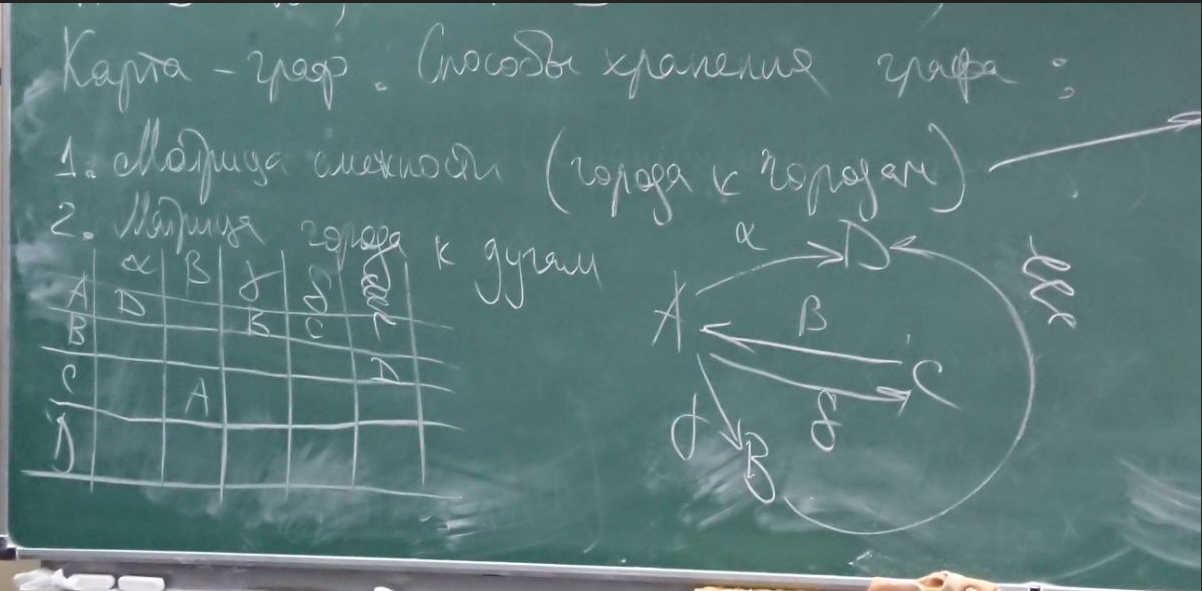 Карта - граф. Способы хранения графа:
1. Матрица смежности (города к городам)
2. Матрица города к дугам
α B γ δ
A D Б C
B D
C A
D
α D
A B C
γ B δ